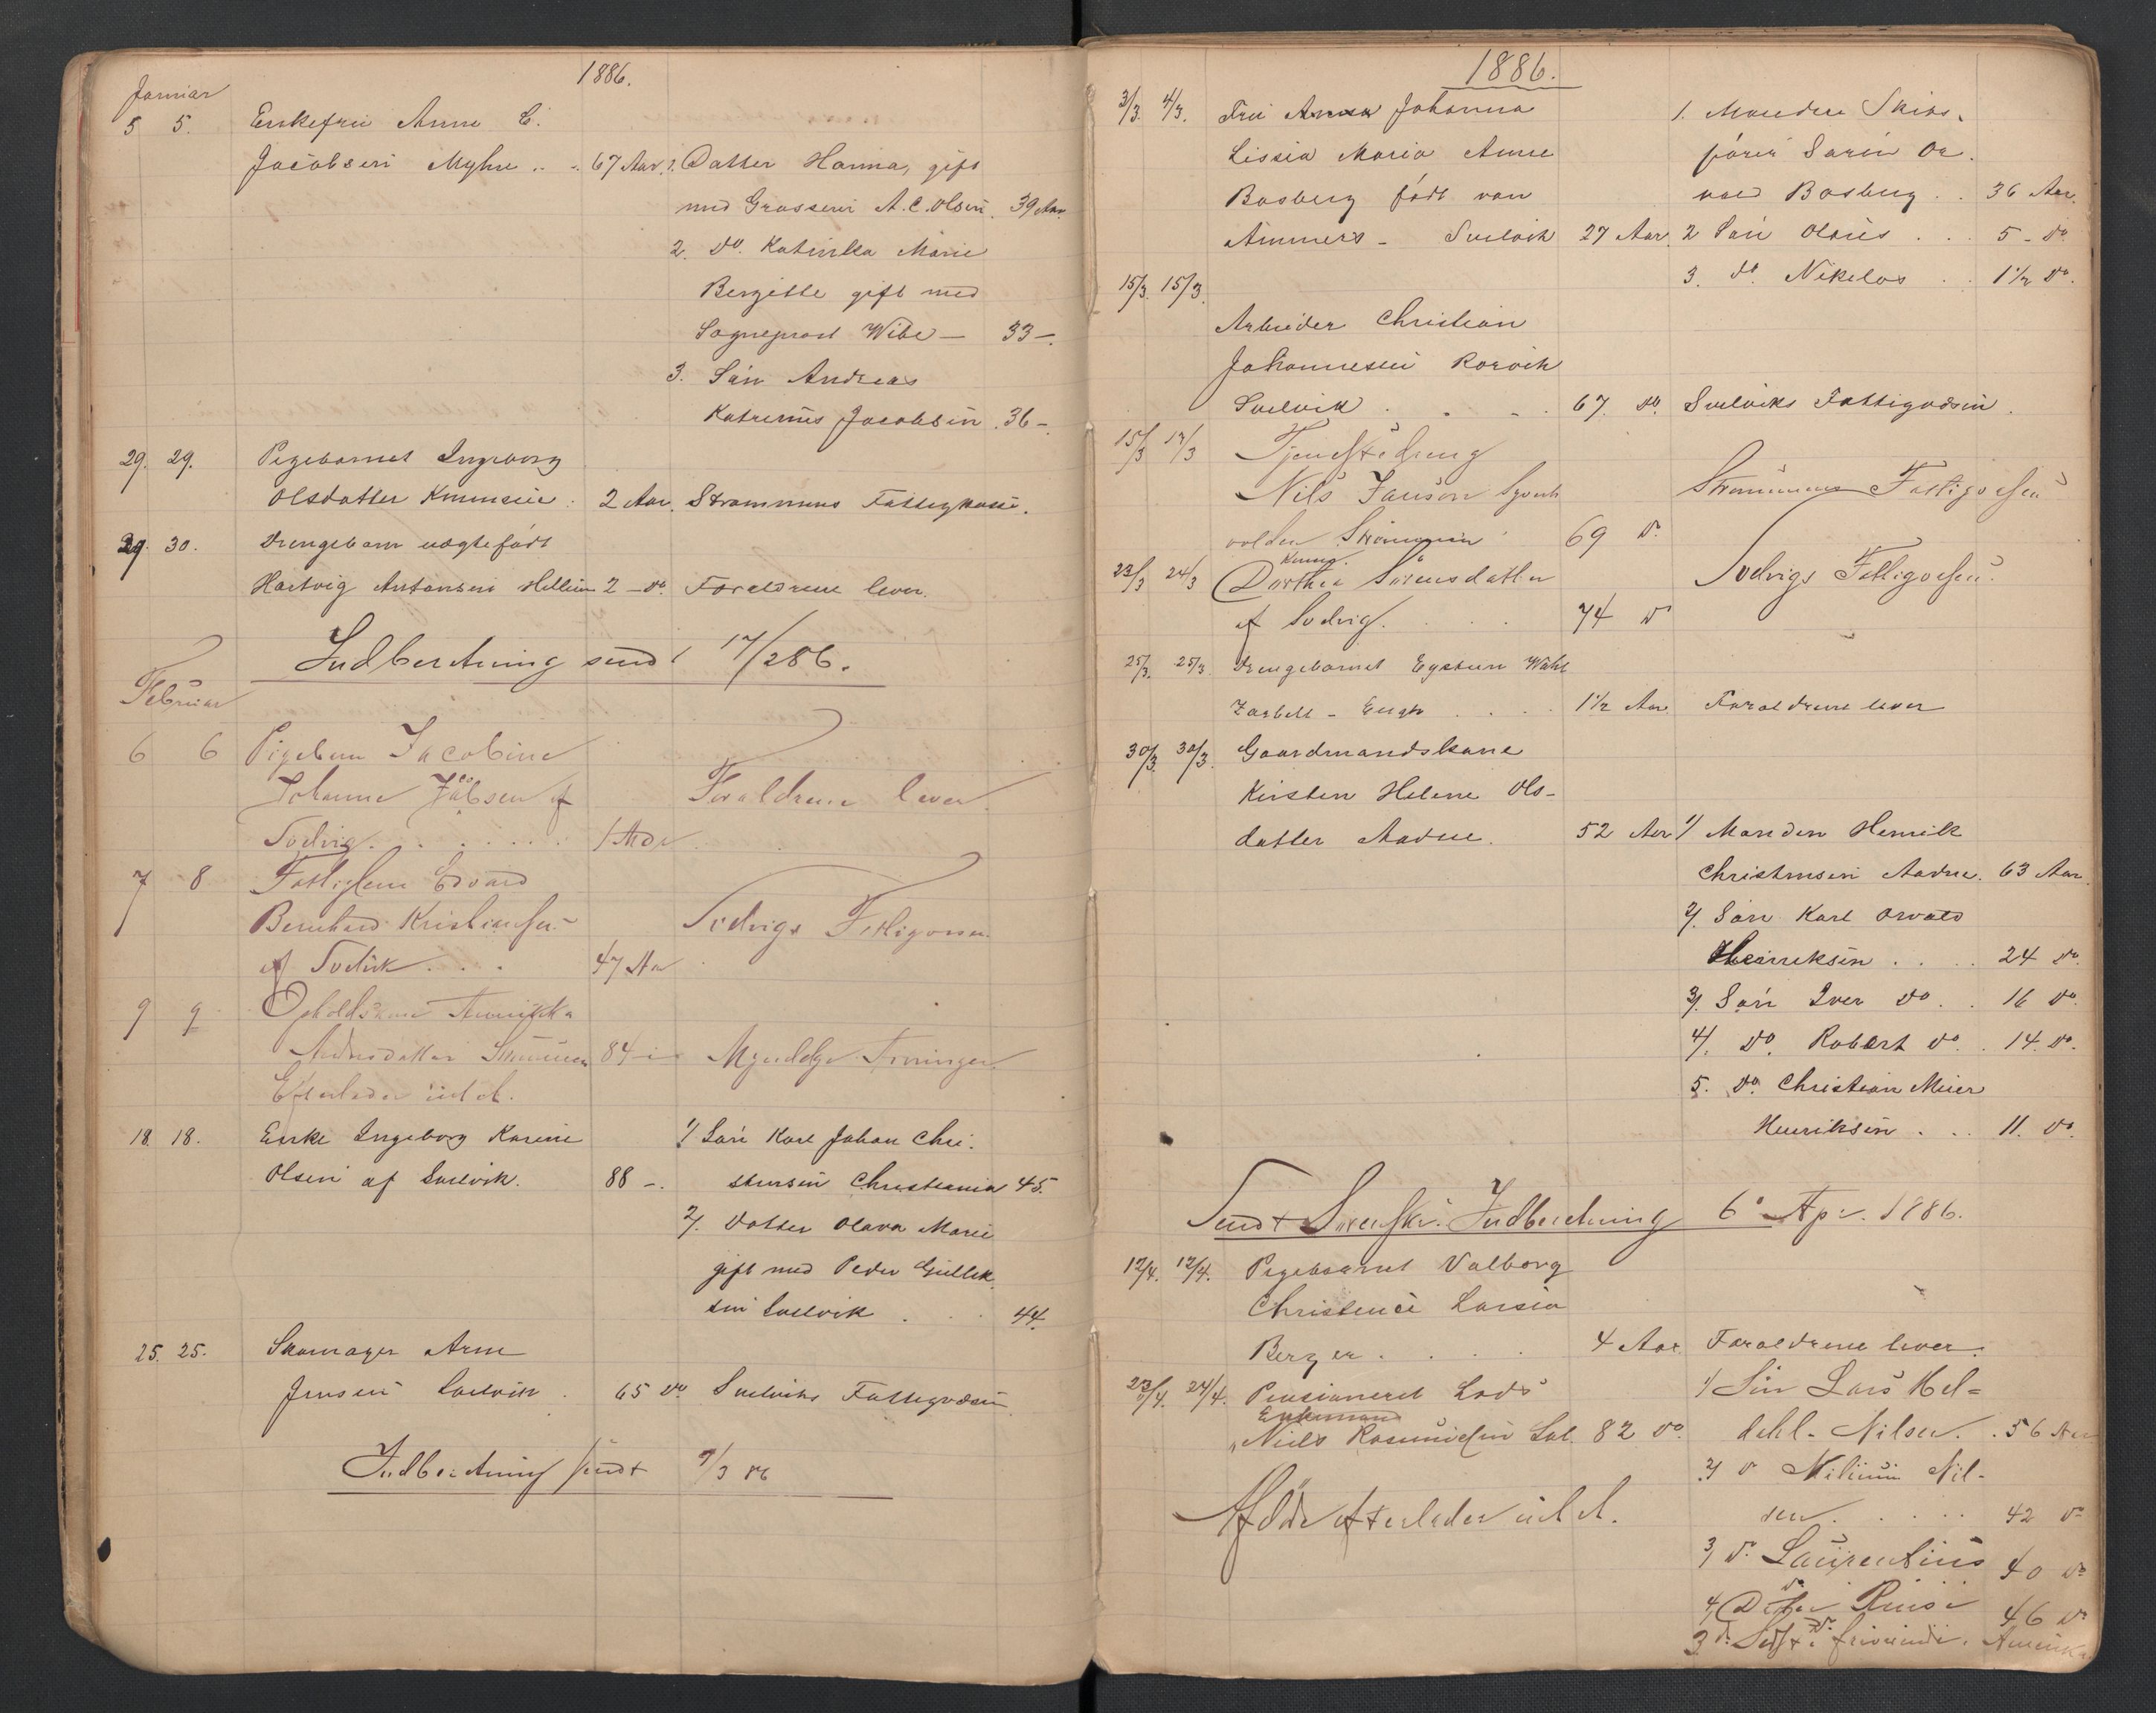 1886.
Januar
5 5. Enkefru Anne C.
Jacobsen Myhre .. . 67 Aar. 1. Datter Hanna, gift
med Grosserer A. C. Olsen. 39 Aar.
2. Do. Katinka Marie
Bergitte gift med
Sogneprest Wibe — 33 —.
3. Søn Andreas
Katrenus Jacobsen . 36 —.
29. 29. Pigebarnet Ingeborg
Olsdatter . 2 Aar. Strømmens Fattigkasse.
29. 30. Drengebarn uægtefødt
Hartvig Antonsen 2 — Do. Forældrene lever.
Indberetning sendt 17/2 86.
Februar
6 6 Pigebarn Jacobine
Johanne af
Svelvig . . . . . . 1 Mdr Forældrene lever.
7 8 Fattiglem Edvard
Bernhard Kristiansen
af Svelvik . . . 47 Aar Svelvigs Fattigvesen.
9 9 Annikka
84 Myndige Arvinger
Efterlader intet.
18. 18. Enke Ingeborg Karine 1/ Søn Karl Johan Chri-
Olsen af Svelvik. 88 —. stensen Christiania 45.
2/. Datter Olava Marie
gift med Peder Gullik
sen Svelvik . . . 44.
25. 25. Skomager Arne
Jensen Svelvik . 65 Do Svelviks Fattigvæsen
Indberetning sendt 9/3 86
1886.
3/3. 4/3. Fru Anna Johanna 1. Manden Skibs-
Lissia Maria Anne fører Søren Os-
Bosberg født van vald Bosberg . . 36 Aar.
Ammers - Svelvik 27 Aar. 2 Søn Olaus . . . 5 - Do.
3. Do. Nikolas . . 1 1/2 Do.
15/3. 15/3.
Arbeider Christian
Johannesen Rorvik
Svelvik . . . . 67. Do. Svelviks Fattigvæsen.
15/3 17/3 Tjenestedreng
Nils Janson Strømmens Fattigvesen
volden Strømmen 69 Do.
23/3 24/3 Dorthea Sørensdatter Svelvigs Fattigvesen.
af Svelvig. . . . 74 Do
25/3. 25/3 Drengebarnet Eystein Wahl
. . . . 1 1/2 Aar. Forældrene lever
30/3. 30/3. Gaardmandskone
Kirsten Helene Ols-
datter Aadne. 52 Aar 1/ Manden Henrik
Christensen Aadne. 63 Aar.
2/. Søn Karl Osvald
Henriksen . . . . 24 Do.
3/. Søn Iver Do . . 16 Do.
4/. Do. Robert Do . . 14. Do.
5. Do. Christian Meier
Henriksen . . . 11. Do.
Sendt Indberetning 6 Apr. 1886.
12/4. 12/4. Pigebarnet Valborg
Christence Larsen
Berger . . . . 4 Aar Forældrene lever.
23/4. 24/4. Pensioneret Lods 1/ Søn Lars Mel-
Enkemand
Niels 82 Do. dahl - Nilsen. . 56 Aar
2/ Do Nil-
sen . . . . . 42 Do
Afdøde efterlader intet.
3/ Do. Laurentius 40 Do
4/ 46 Do
Amerika